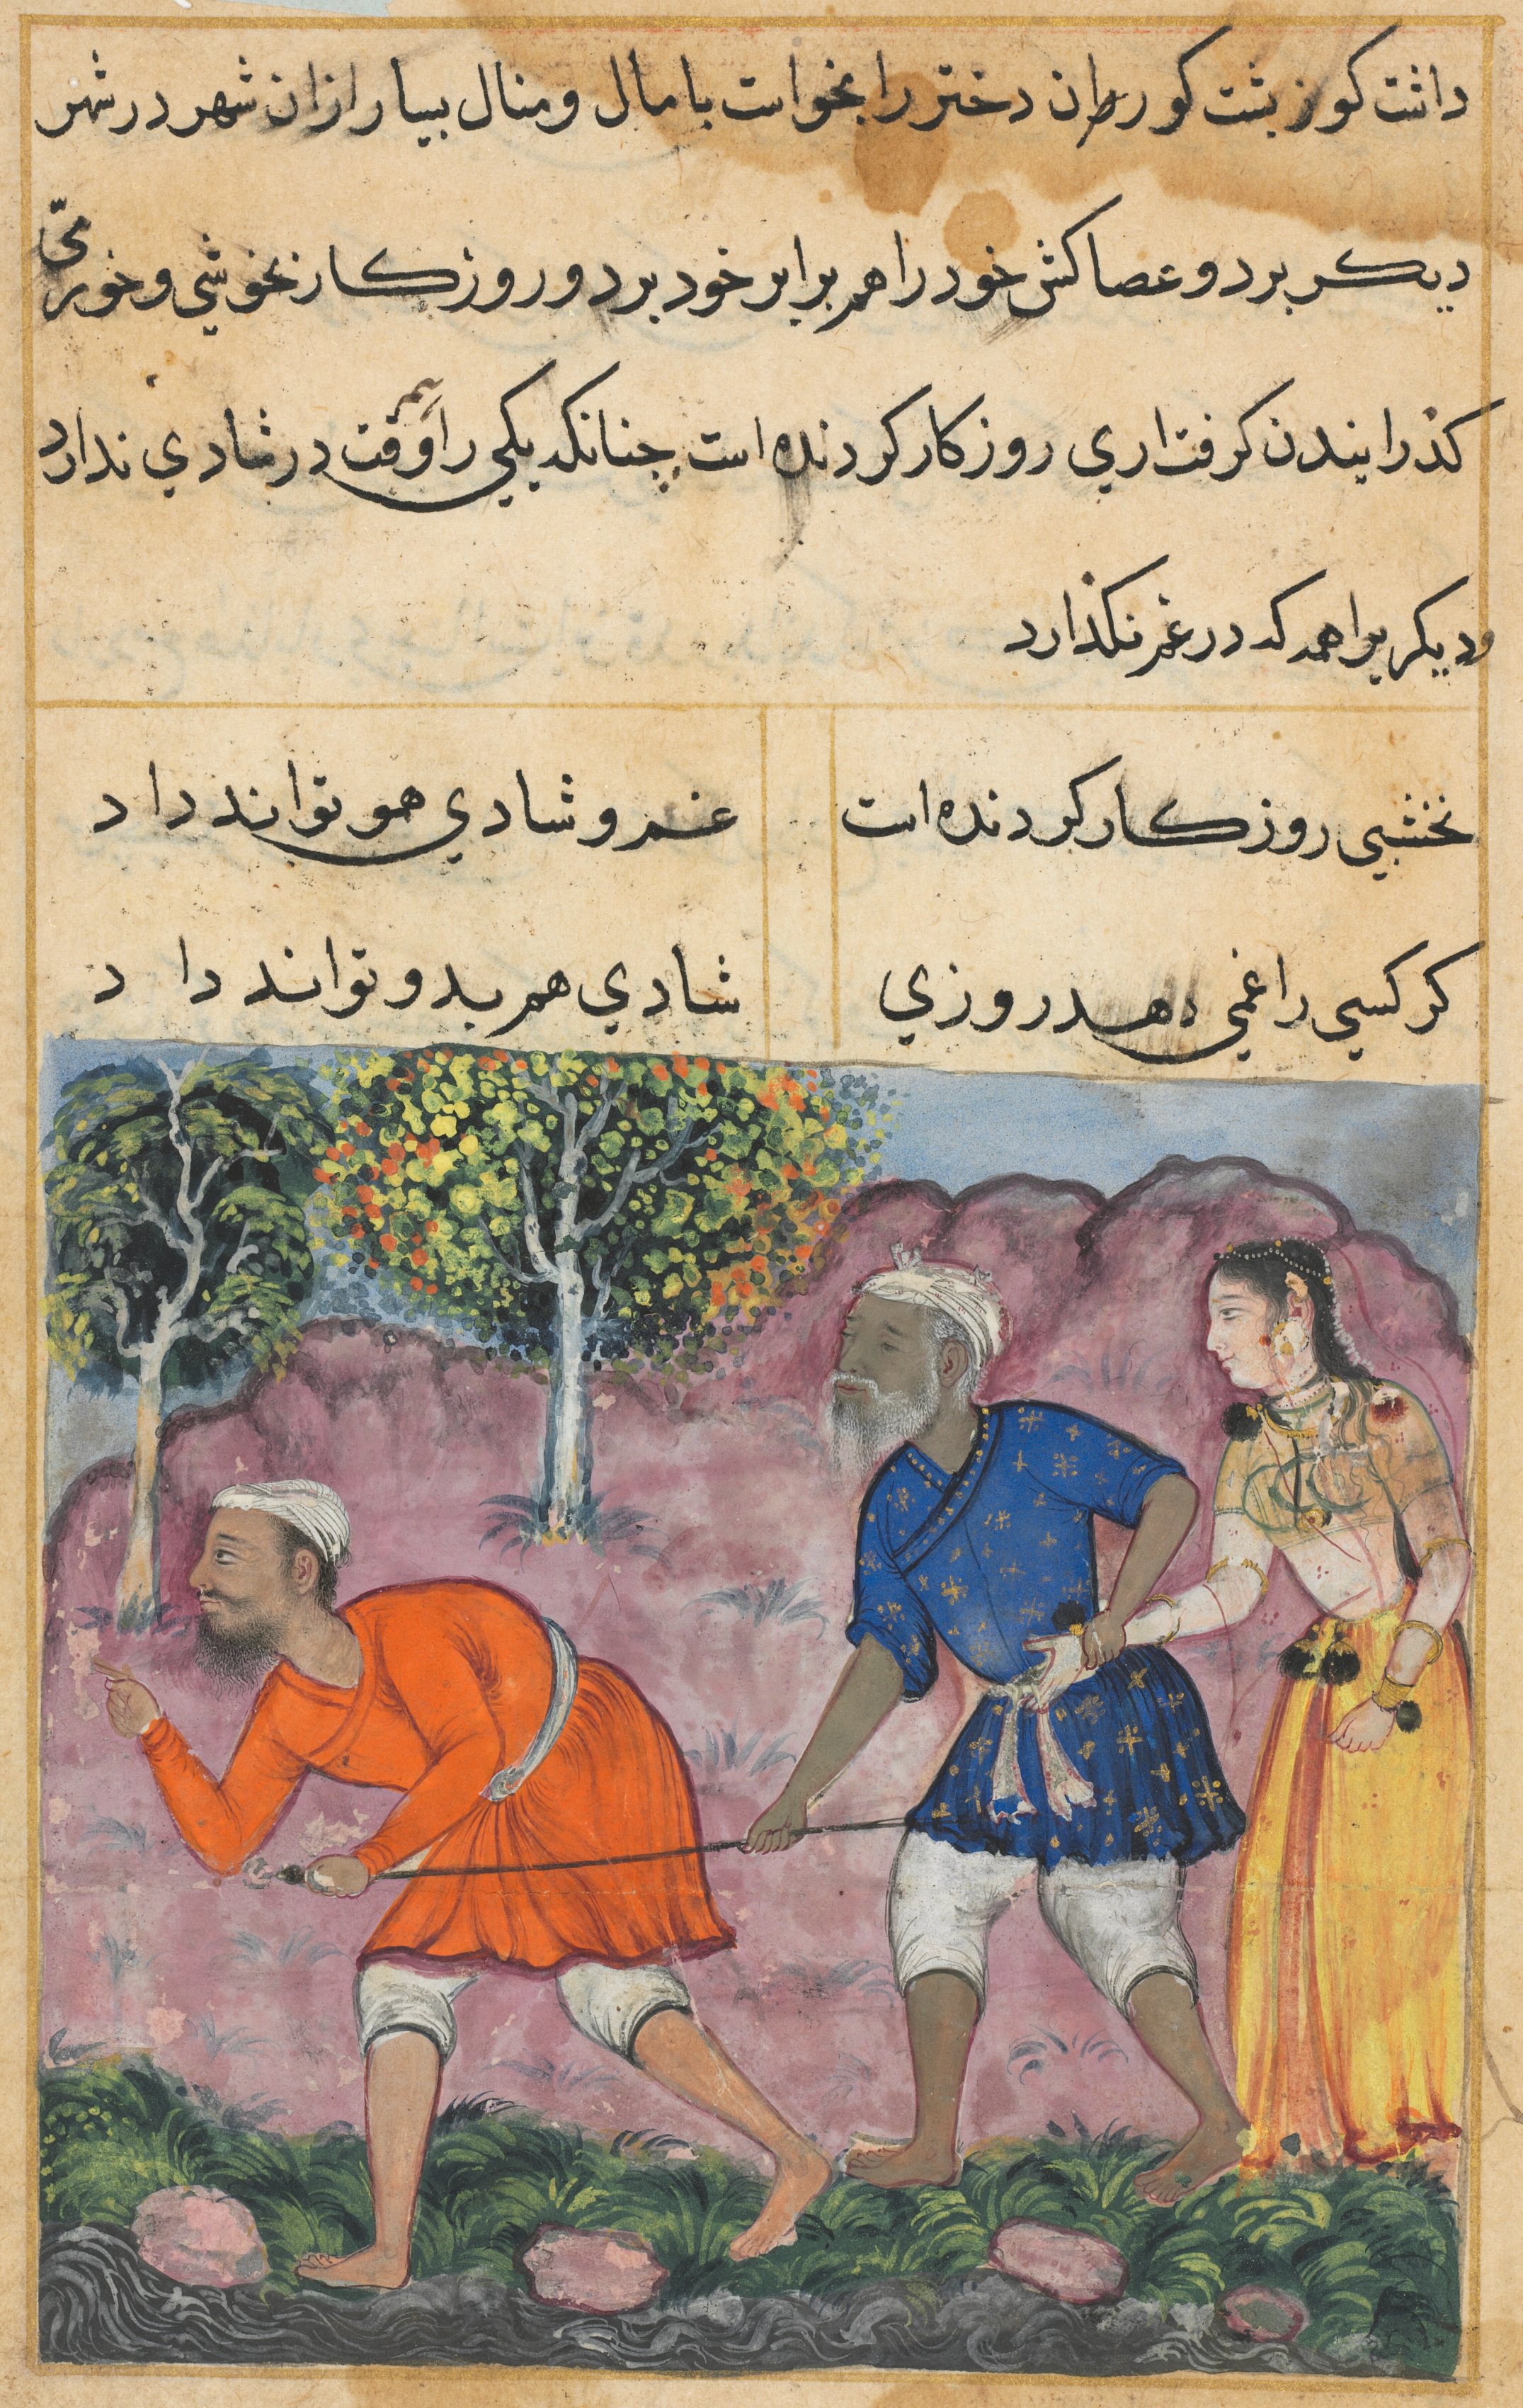 داشت کوز پشت کور ران دختر را بخواست با مال و منال بسیار ازان شهر در شهر
دیکر برد و عصاکش خود را هم برابر خود برد و روزکار بخوشی و خورمی
کذرایندن کرفت اری روزکار کردنده است چنانکه یکی را دایم وقت در شادي ندارد
و دیکریرا همه که در غم نکذارد
نخشبی روزکار کردنده است
غم و شادي هو تواند داد
کر کسی را غمی دهد روزي
شادي هم بدو تواند داد